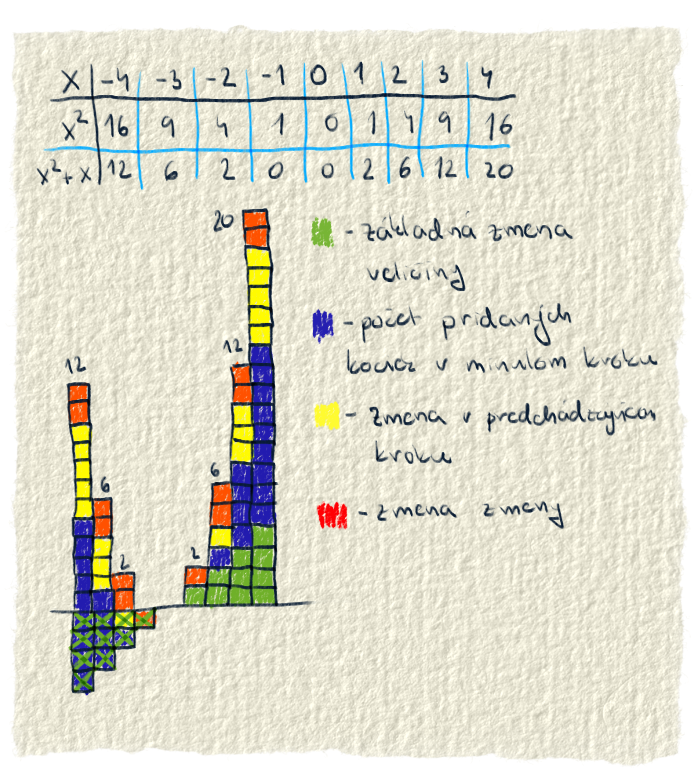 x -4 -3 -2 -1 0 1 2 3 4
x² 16 9 4 1 0 1 4 9 16
x²+x 12 6 2 0 0 2 6 12 20
20
- základná zmena
veličiny
- počet pridaných
kociek v minulom kroku
12
12
- zmena v predchádzajúcom
kroku
6
6
- zmena zmeny
2
2